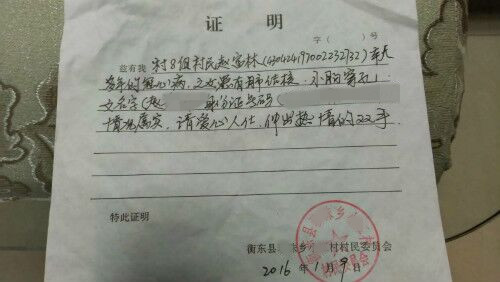 证 明
字（ ）号
兹有我 村8组村民赵富林(430424197002232732)
多年的冠心病,又患有肺结核,
女名字(赵 身份证号码(
情况属实,请爱心人仕,伸出热情的双手
特此证明
衡东县 乡 村村民委员会
2016年1月9日